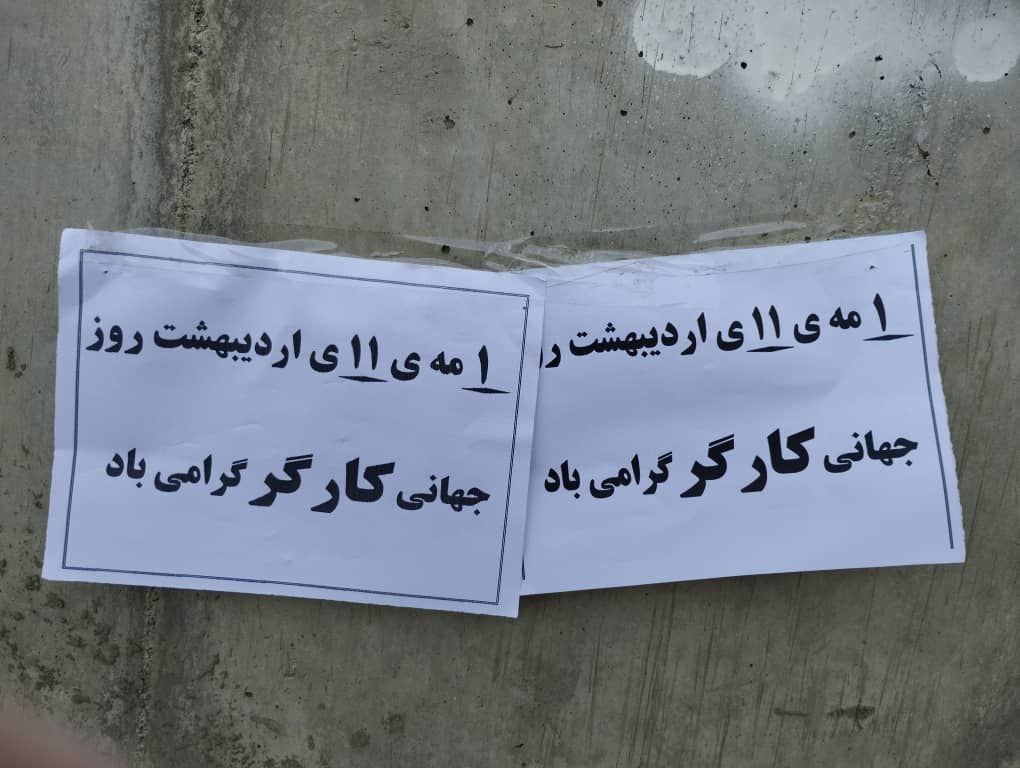 ۱ مه ی ۱۱ ی اردیبهشت روز
جهانی کارگر گرامی باد
۱ مه ی ۱۱ ی اردیبهشت رو
جهانی کارگر گرامی باد